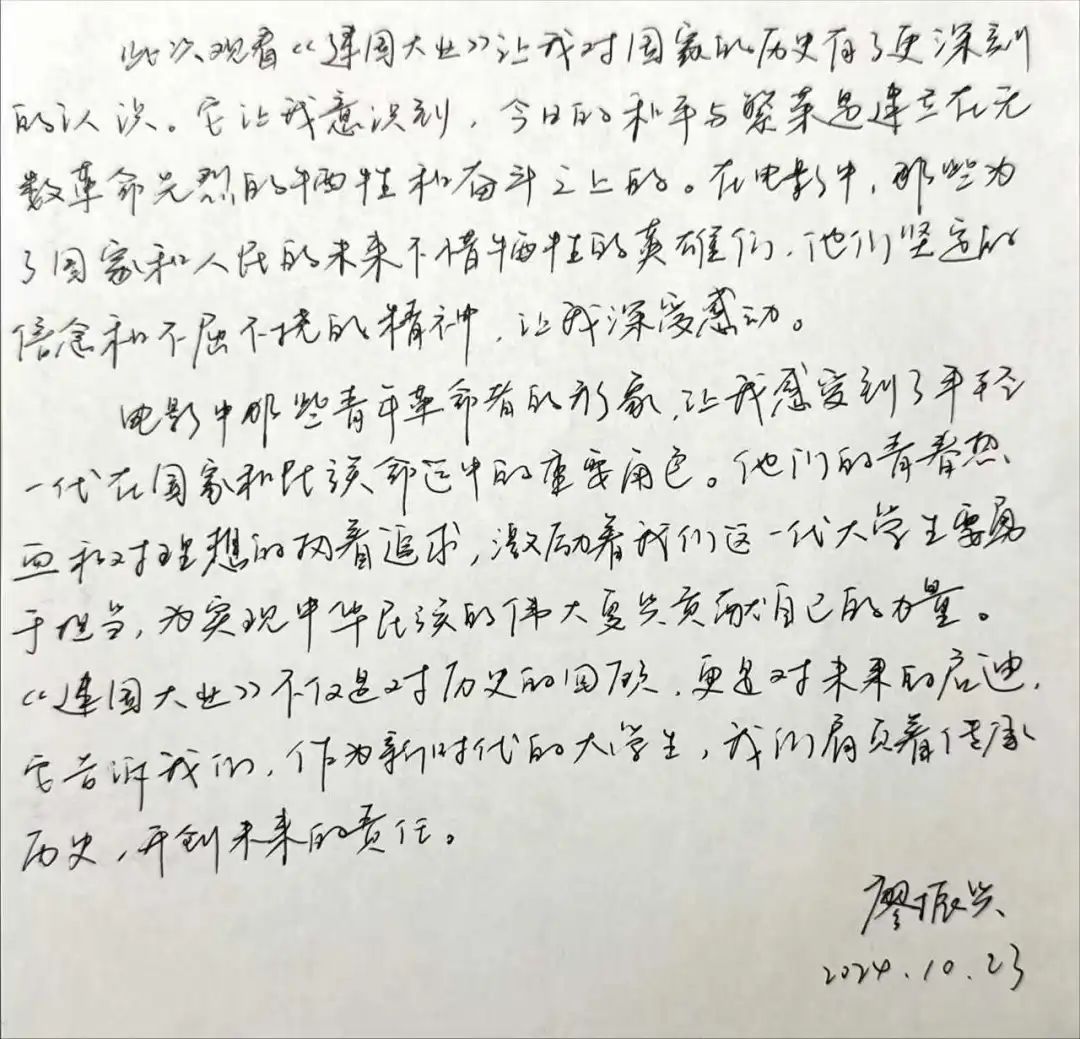 此次观看《建国大业》让我对国家的历史有了更深刻
的认识。它让我意识到，今日的和平与繁荣是建立在无
数革命先烈的牺牲和奋斗之上的。在电影中，那些为
了国家和人民的未来不惜牺牲的英雄们，他们坚定的
信念和不屈不挠的精神，让我深受感动。
电影中那些青年革命者的形象，让我感受到了年轻
一代在国家和民族命运中的重要角色。他们的青春热
血和对理想的执着追求，激励着我们这一代大学生要勇
于担当，为实现中华民族的伟大复兴贡献自己的力量。
《建国大业》不仅是对历史的回顾，更是对未来的启迪，
它告诉我们，作为新时代的大学生，我们肩负着传承
历史，开创未来的责任。
廖振兴
2024.10.23